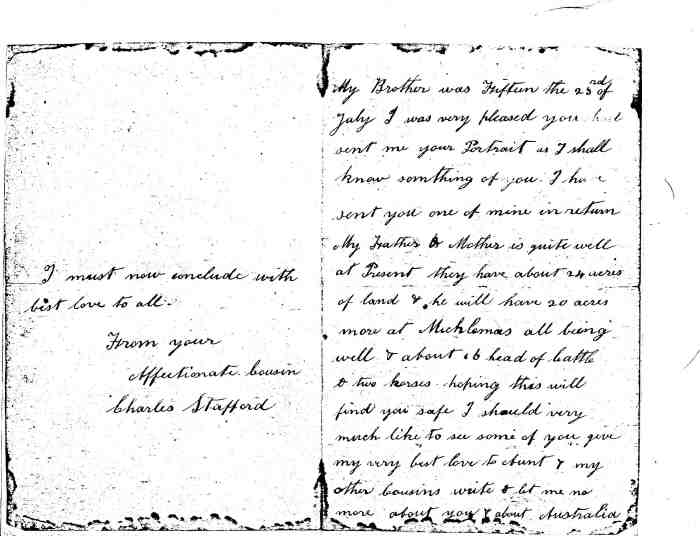 My Brother was Fifteen the 23rd of
July I was very pleased you had
sent me your Portrait as I shall
know somthing of you. I have
sent you one of mine in return
My Frather & Mother is quite well
at Present they have about 24 acres
of land & he will have 20 acres
more at Micklemas all being
well & about 16 head of Cattle
& two horses hoping this will
find you safe I should very
much like to see some of you give
my very best love to Aunt & my
other Cousins write & let me no
more about you & about Australia
I must now conclude with
best love to all.
From your
Affectionate Cousin
Charles Stafford